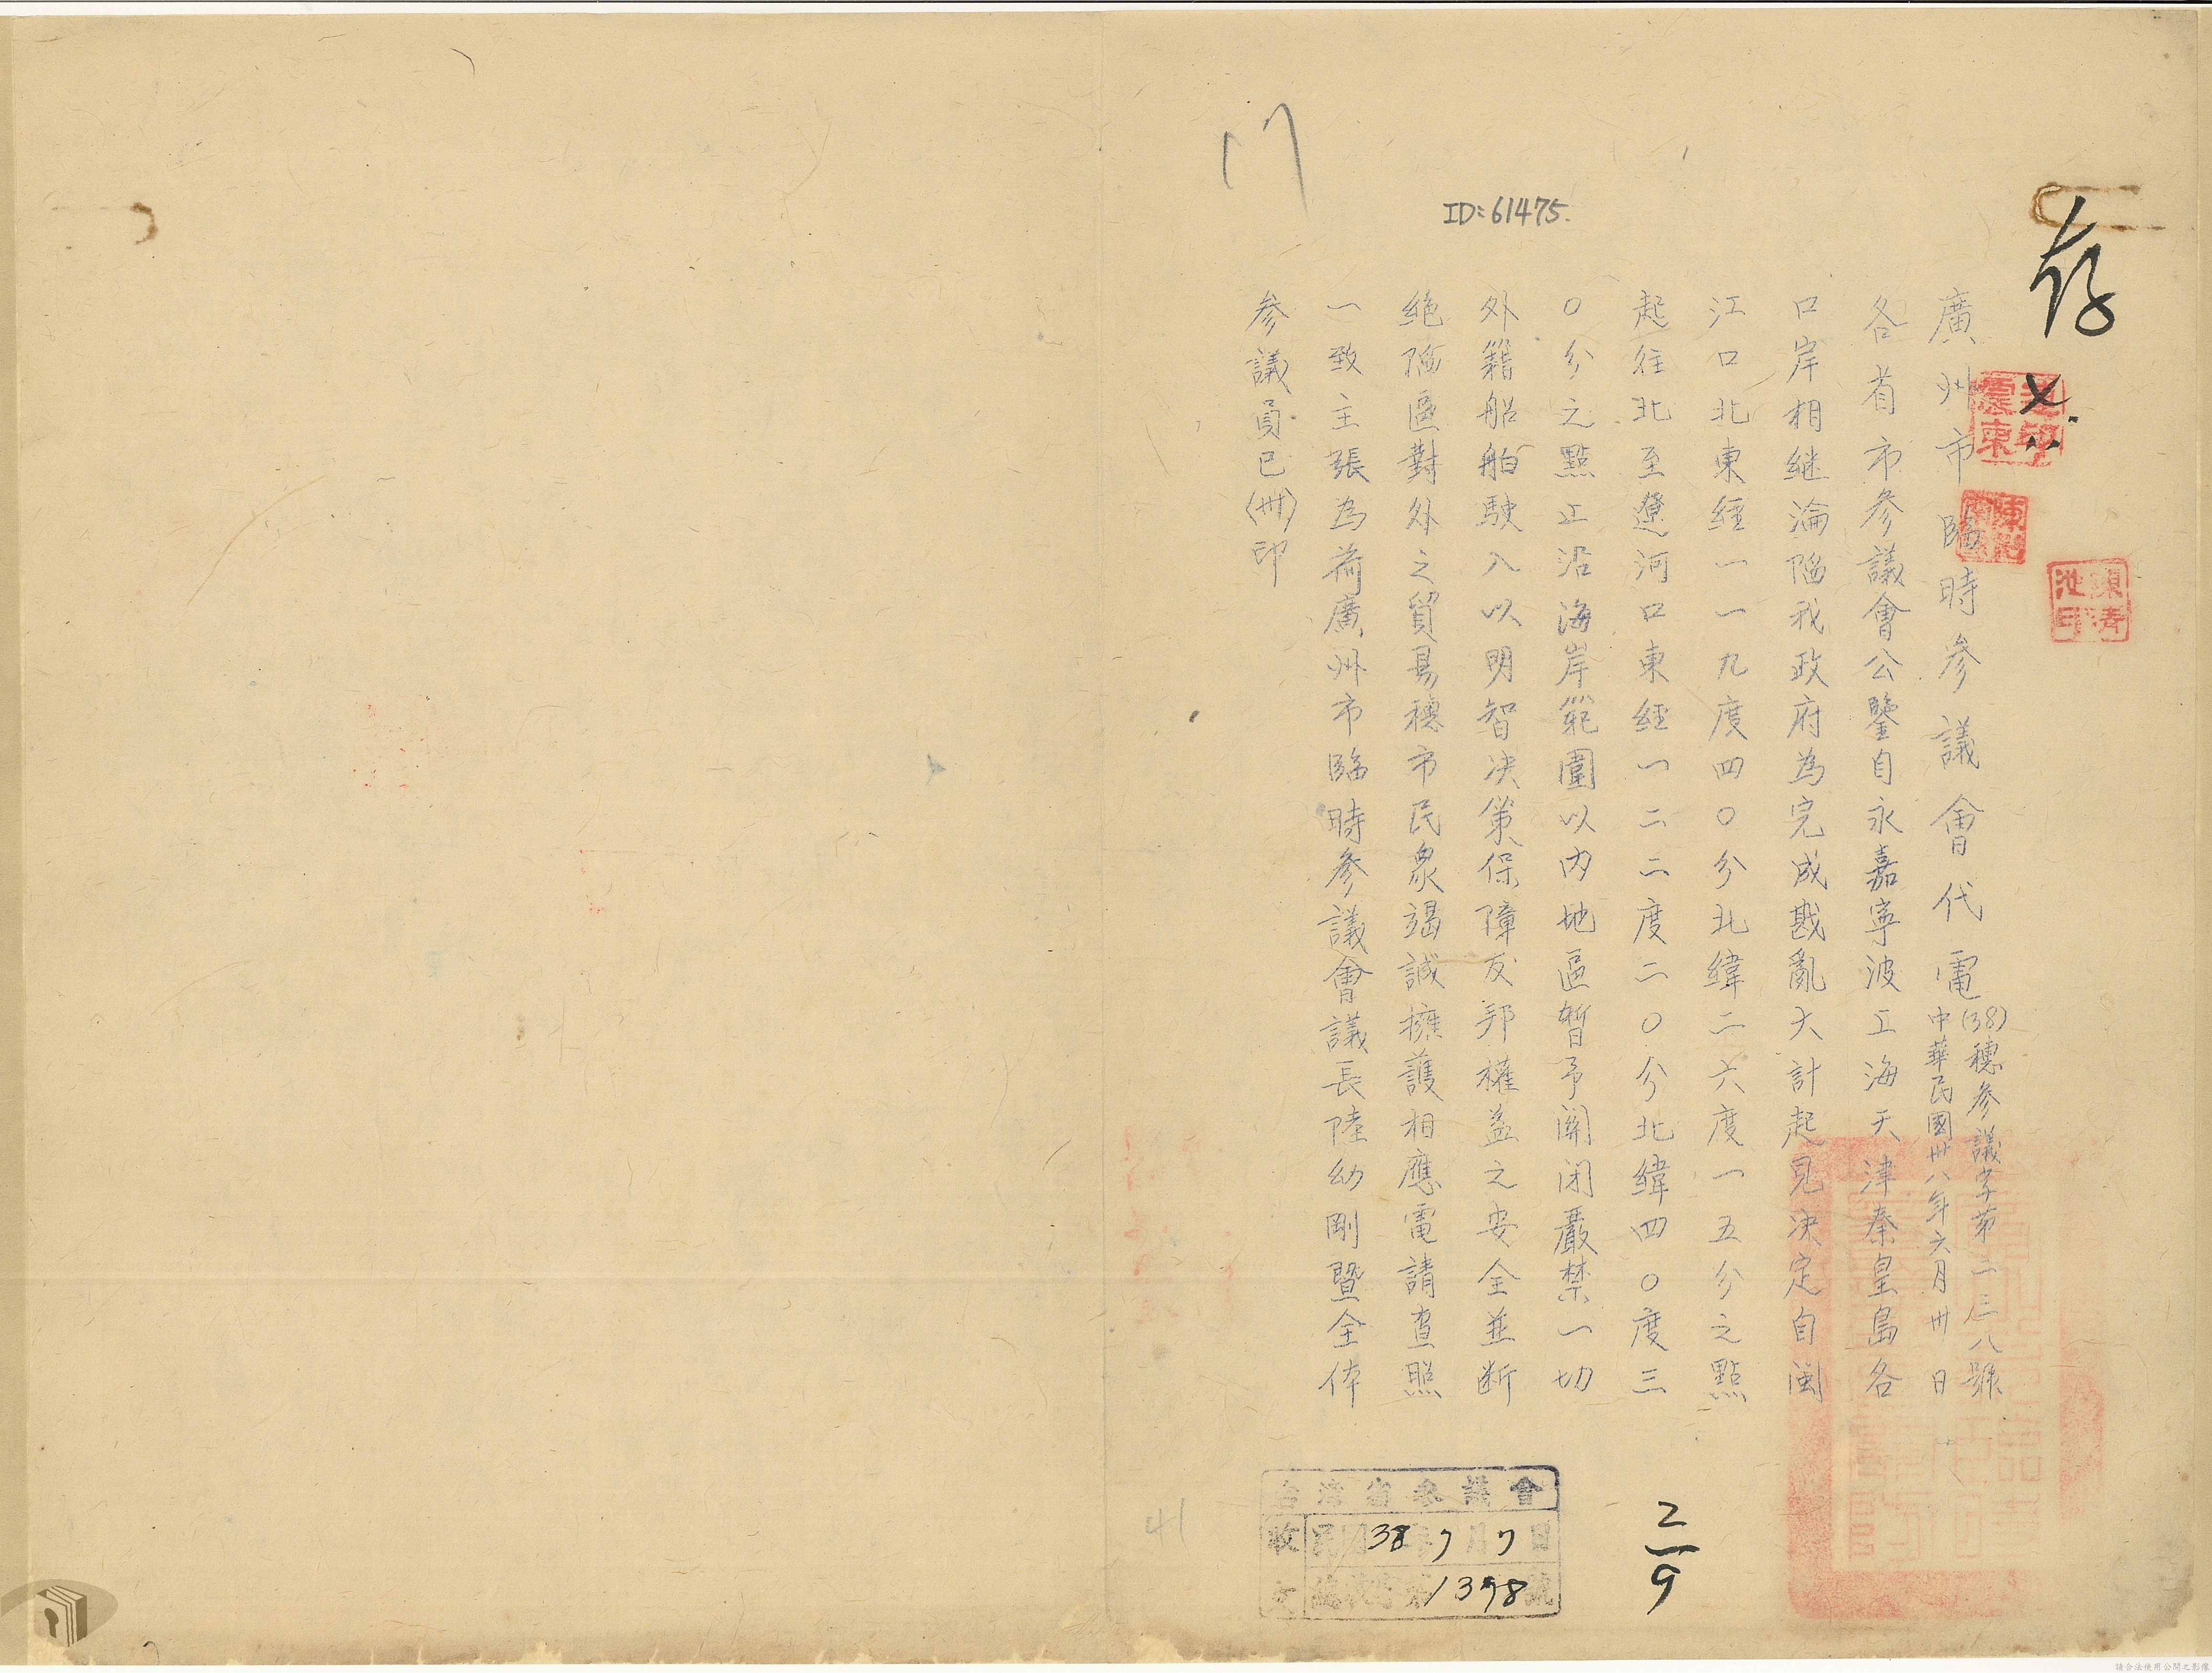 存
ID:61475.
廣州市臨時參議會代電
(38)穗參議字第二三八號
中華民國卅八年六月卅日
各省市參議會公鑒自永嘉寧波上海天津秦皇島各
口岸相継淪陷我政府為完成戡亂大計起見決定自閩
江口北東經一一九度四〇分北緯二六度一五分之點
起往北至遼河口東經一二二度二〇分北緯四〇度三
〇分之點止沿海岸範圍以內地區暫予關闭嚴禁一切
外籍船舶駛入以明智决策保障友邦權益之安全並断
絕陷區對外之貿易穗市民衆竭誠擁護相應電請查照
一致主張為荷廣州市臨時參議會議長陸幼剛暨全体
參議員巳〈卅〉印
台灣省參議會
收文
民國38年7月7日
1398號
2
9
41
請合法使用公開之影像